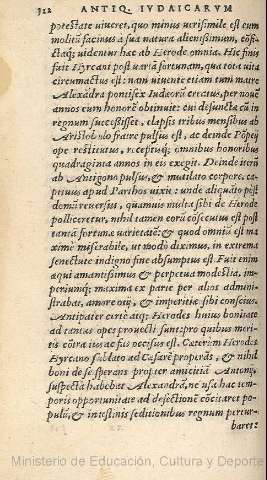 312 ANTIQ. IVDAICARVM
potestate viueret, quo minus verisimile est eum
molitũ facinus à sua natura alienissimum, cõfi-
ctaq; videntur hac ab Herode omnia. Hic finis
fuit Hyrcani post variã fortunam, qua tota vita
circumactus est: nam viuente etiam tum matre
Alexãdra pontifex Iudæorũ creatus, per nouẽ
annos eum honorẽ obtinuit: cui defunctæ cũ in
regnum successisset, elapsis tribus mensibus ab
Aristobulo fratre pulsus est, ac deinde Põpeij
ope restitutus, receptisq; omnibus honoribus
quadraginta annos in eis exegit. Deinde iterũ
ab Antigono pulsus, & mutilato corpore, ca-
ptiuus apud Parthos vixit: vnde aliquãto pòst
domũ reuersus, quamuis multa sibi de Herode
polliceretur, nihil tamen eorũ cõsecutus est post
tantã fortunæ varietatẽ: & quod omniũ est ma
ximè miserabile, vt modò diximus, in extrema
senectute indigno fine absumptus est. Fuit enim
æqui amantissimus & perpetua modestia, im-
periumq; maxima ex parte per alios admini-
strabat, amore otij, & imperitiæ sibi conscius.
Antipater certè atq; Herodes huius bonitate
ad tantas opes prouecti sunt: pro quibus meri-
tis cõtra ius ac fas occisus est. Cæterùm Herodes
Hyrcano sublato ad Cæsarẽ properãs, & nihil
boni de se sperans propter amicitiã Antonij,
suspectã habebat Alexandrã, ne vsa hac tem-
poris opportunitate ad defectionẽ cõcitaret po-
pulũ, & intestinis seditionibus regnum pertur-
baret:
Ministerio de Educación, Cultura y Deporte